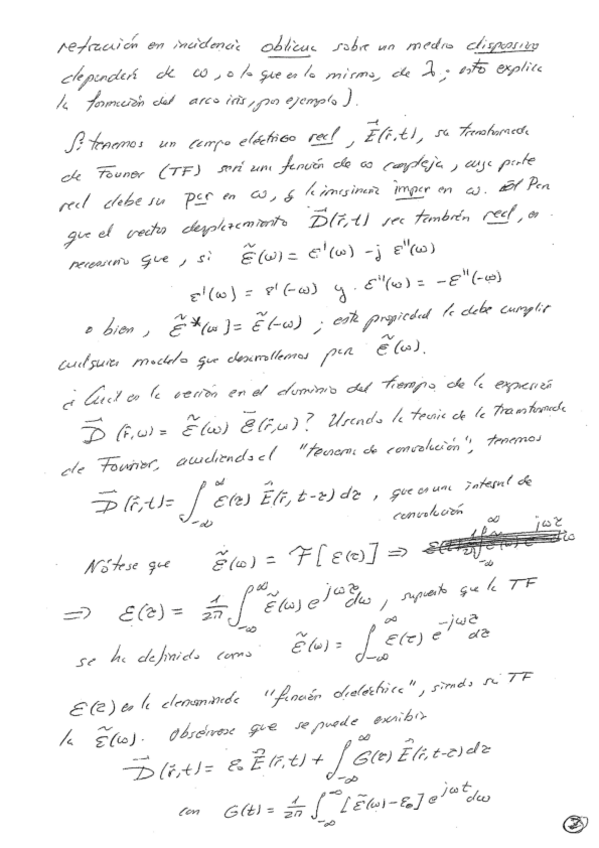 refracción en incidencia oblicua sobre un medio dispersivo
dependerá de ω, o lo que es lo mismo, de λ; esto explica
la formación del arco iris, por ejemplo).
Si tenemos un campo eléctrico real, E⃗(r̄,t), su transformada
de Fourier (TF) será una función de ω compleja, cuya parte
real debe su par en ω, y la imaginaria impar en ω. Para
que el vector desplazamiento D⃗(r̄,t) sea también real, es
necesario que, si ε̃(ω) = ε'(ω) - j ε''(ω)
ε'(ω) = ε'(-ω) y ε''(ω) = -ε''(-ω)
o bien, ε̃*(ω) = ε̃(-ω); esta propiedad la debe cumplir
cualquier modelo que desarrollemos para ε̃(ω).
¿Cuál es la versión en el dominio del tiempo de la expresión
D⃗(r̄,ω) = ε̃(ω) E⃗(r̄,ω)? Usando la teoría de la Transformada
de Fourier, acudiendo al "teorema de convolución", tenemos
D⃗(r̄,t) = ∫_{-∞}^{∞} ε(τ) E⃗(r̄,t-τ) dτ, que es una integral de
convolución
Nótese que ε̃(ω) = F[ε(τ)] ⇒
⇒ ε(τ) = 1/2π ∫_{-∞}^{∞} ε̃(ω) e^{jωτ} dω, supuesto que la TF
se ha definido como ε̃(ω) = ∫_{-∞}^{∞} ε(τ) e^{-jωτ} dτ
ε(τ) es la denominada "función dieléctrica", siendo su TF
la ε̃(ω). Obsérvese que se puede escribir
D⃗(r̄,t) = ε₀ E⃗(r̄,t) + ∫_{-∞}^{∞} G(τ) E⃗(r̄,t-τ) dτ
con G(t) = 1/2π ∫_{-∞}^{-∞} [ε̃(ω) - ε₀] e^{jωt} dω